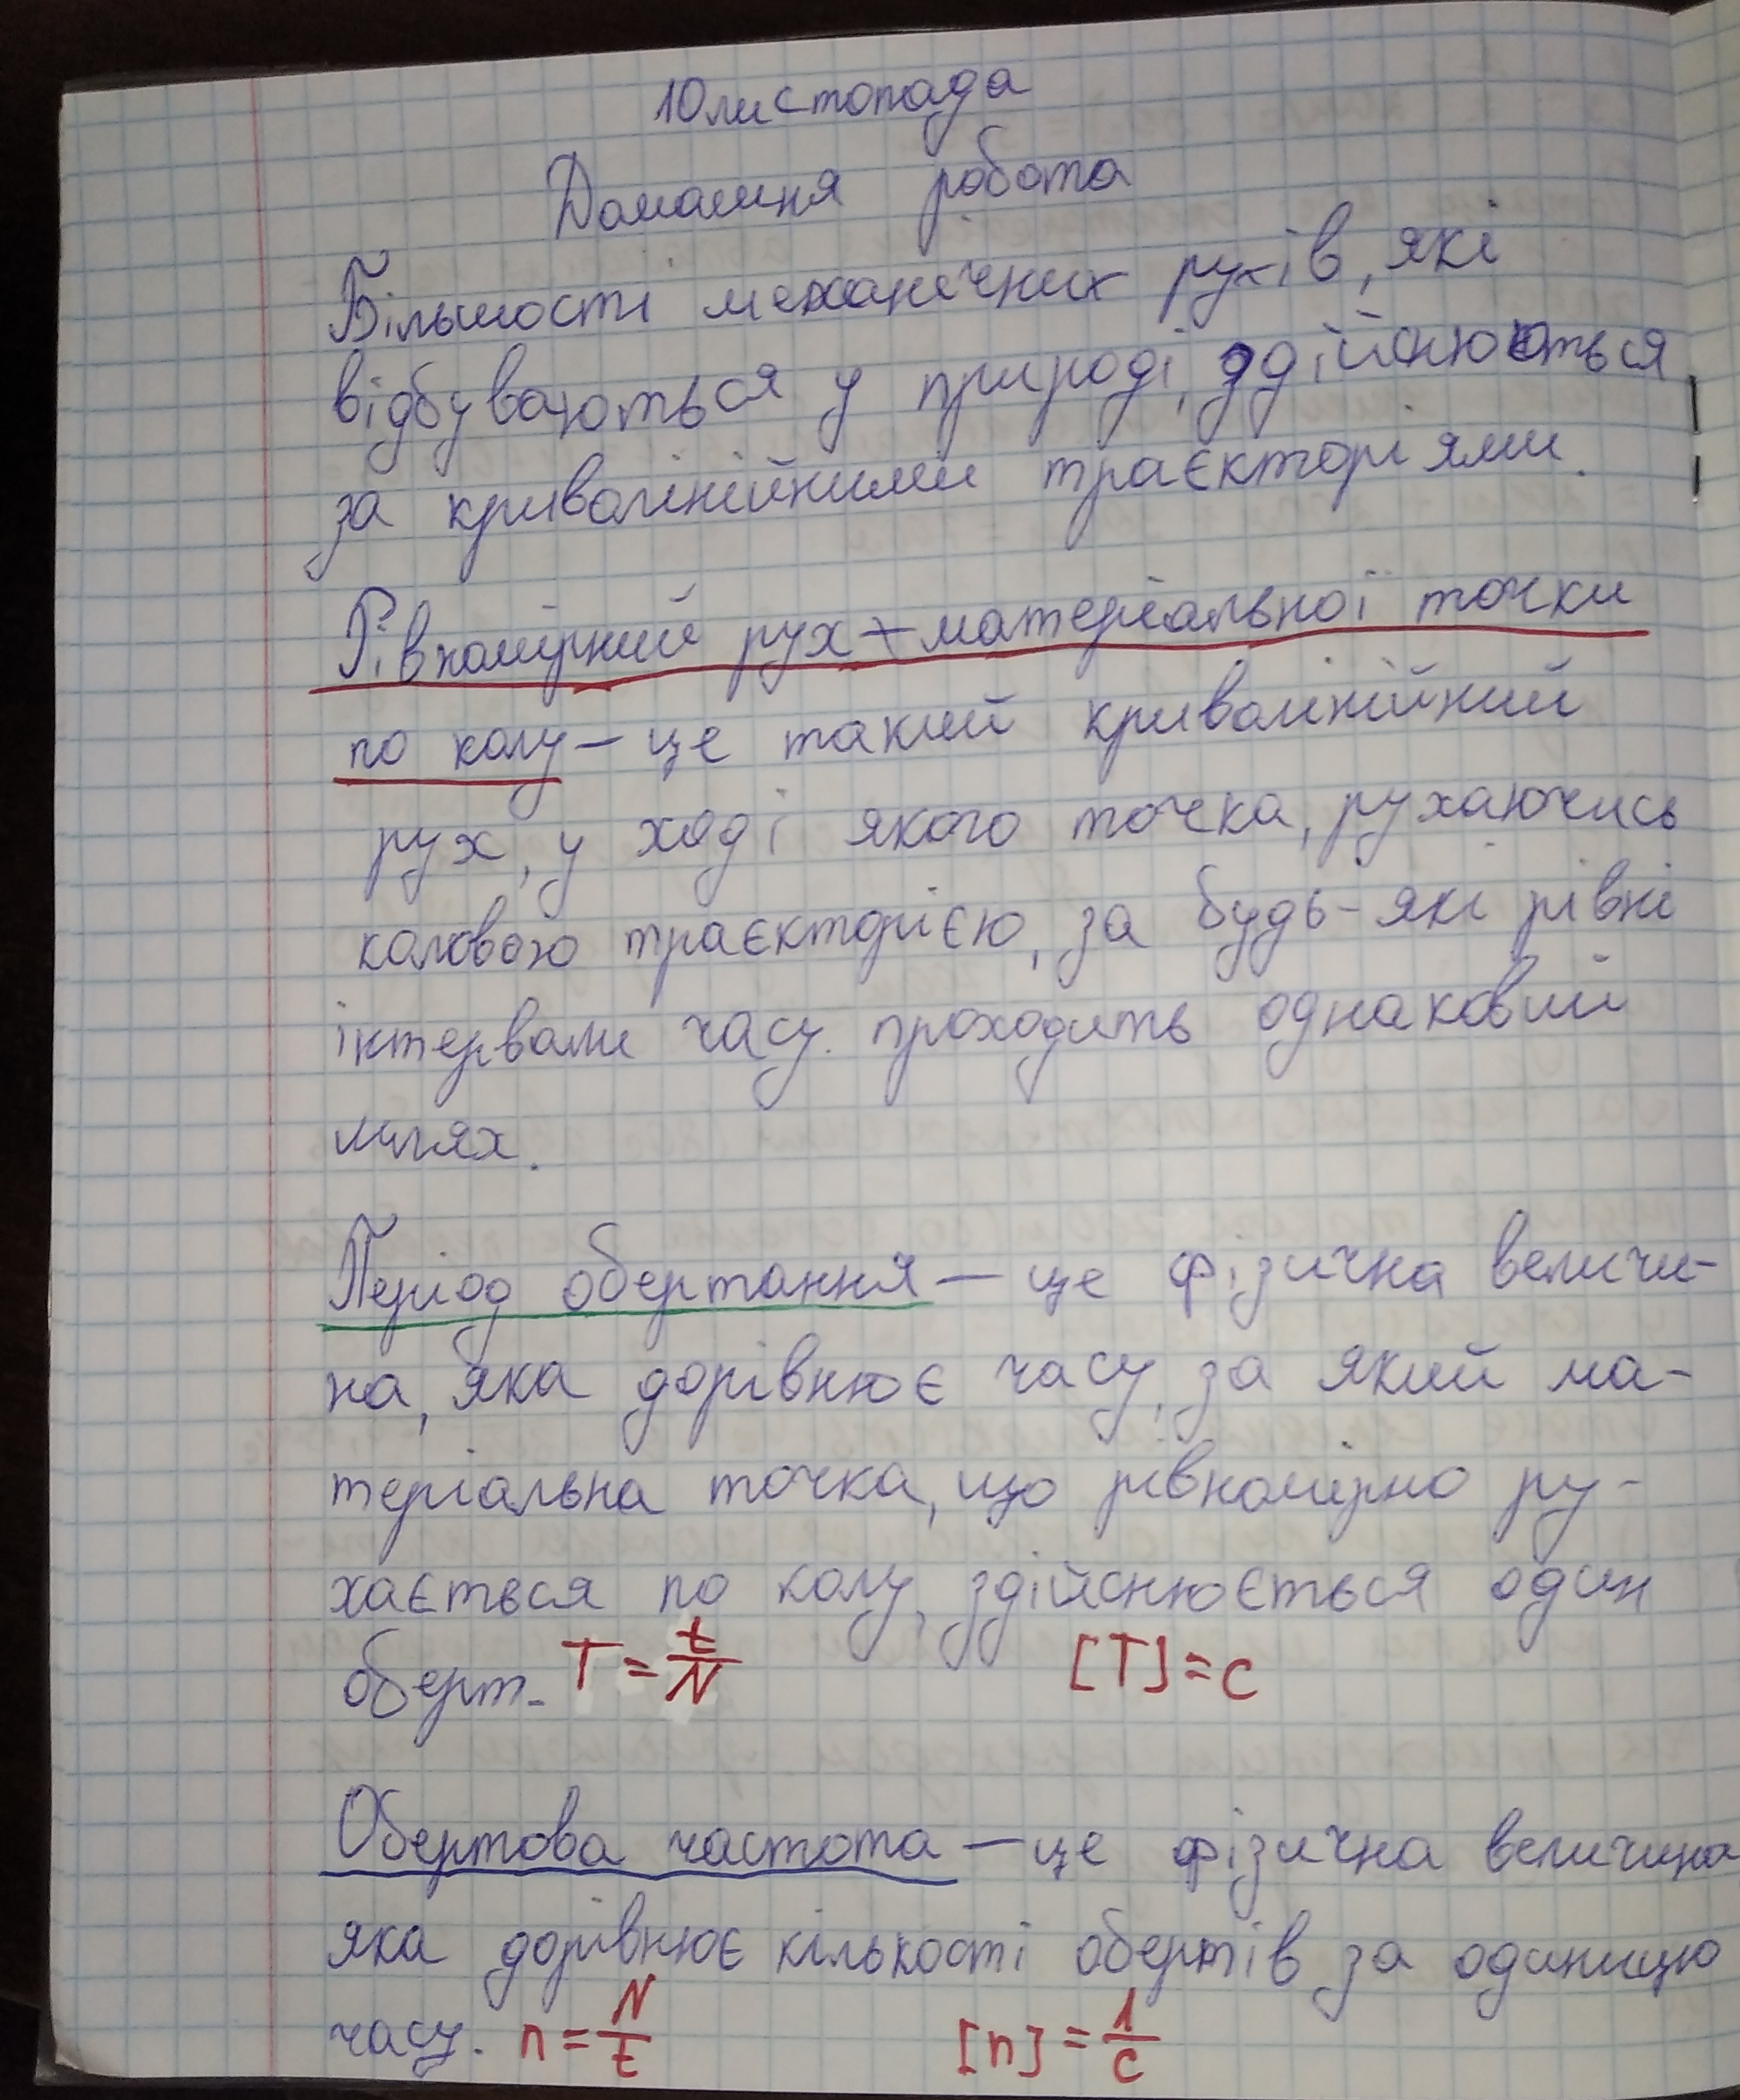 10 листопада
Домашня робота
Більшості механічних рухів, які
відбуваються у природі, здійснюються
за криволінійними траєкторіями.
Рівномірний рух матеріальної точки
по колу – це такий криволінійний
рух, у ході якого точка, рухаючись
коловою траєкторією, за будь-які рівні
інтервали часу проходить однаковий
шлях.
Період обертання – це фізична величи-
на, яка дорівнює часу, за який ма-
теріальна точка, що рівномірно ру-
хається по колу, здійснюється один
оберт. T = t/N [T] = c
Обертова частота – це фізична величина
яка дорівнює кількості обертів за одиницю
часу. n = N/t [n] = 1/c